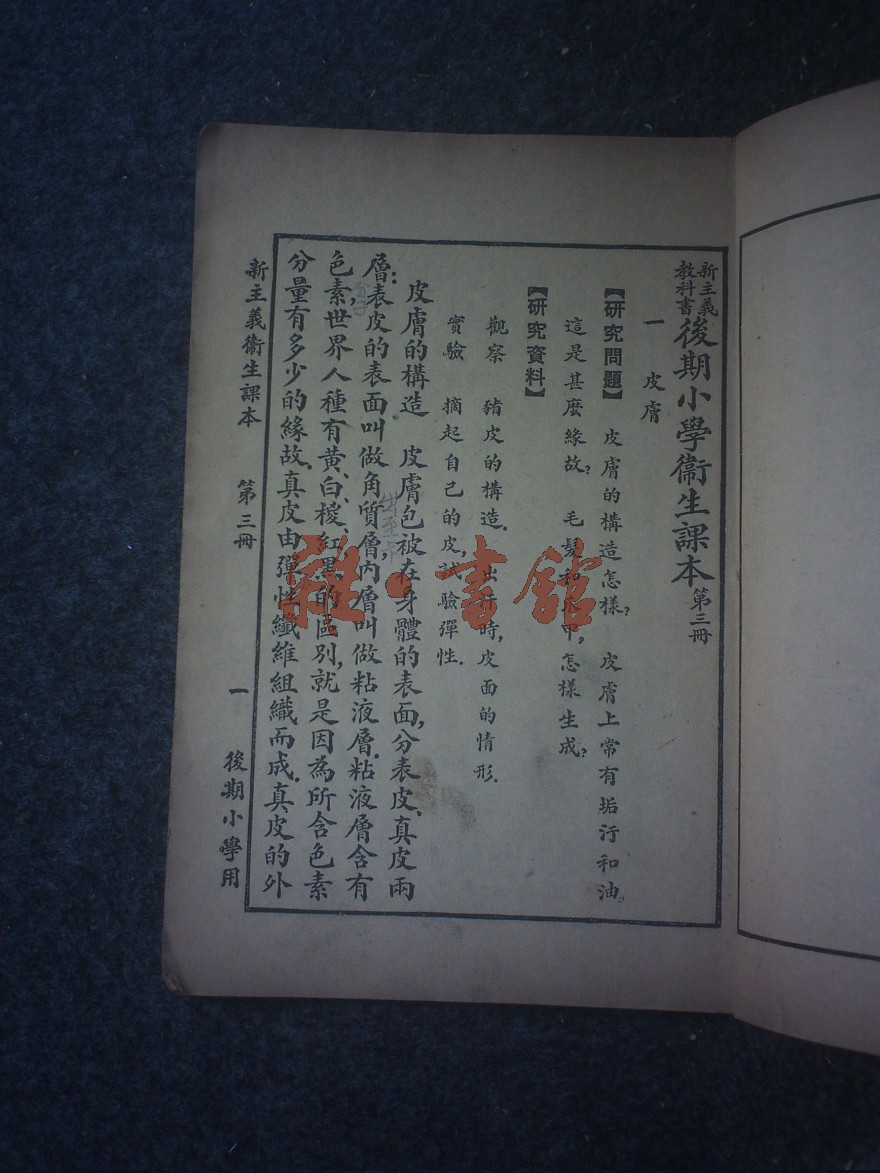 新主義教科書後期小學衞生課本第三冊
一 皮膚
【研究問題】 皮膚的構造怎樣? 皮膚上常有垢汙和油,
這是甚麼緣故? 毛髮和爪甲,怎樣生成?
【研究資料】
觀察 豬皮的構造. 出汗時,皮面的情形.
實驗 摘起自己的皮,試驗彈性.
皮膚的構造 皮膚包被在身體的表面,分表皮、真皮兩
層:表皮的表面叫做角質層,內層叫做粘液層.粘液層含有
色素,世界人種有黃、白、椶、紅、黑的區別,就是因為所含色素
分量有多少的緣故.真皮由彈性纖維組織而成.真皮的外
新主義衞生課本 第三冊 一 後期小學用
雜·書館